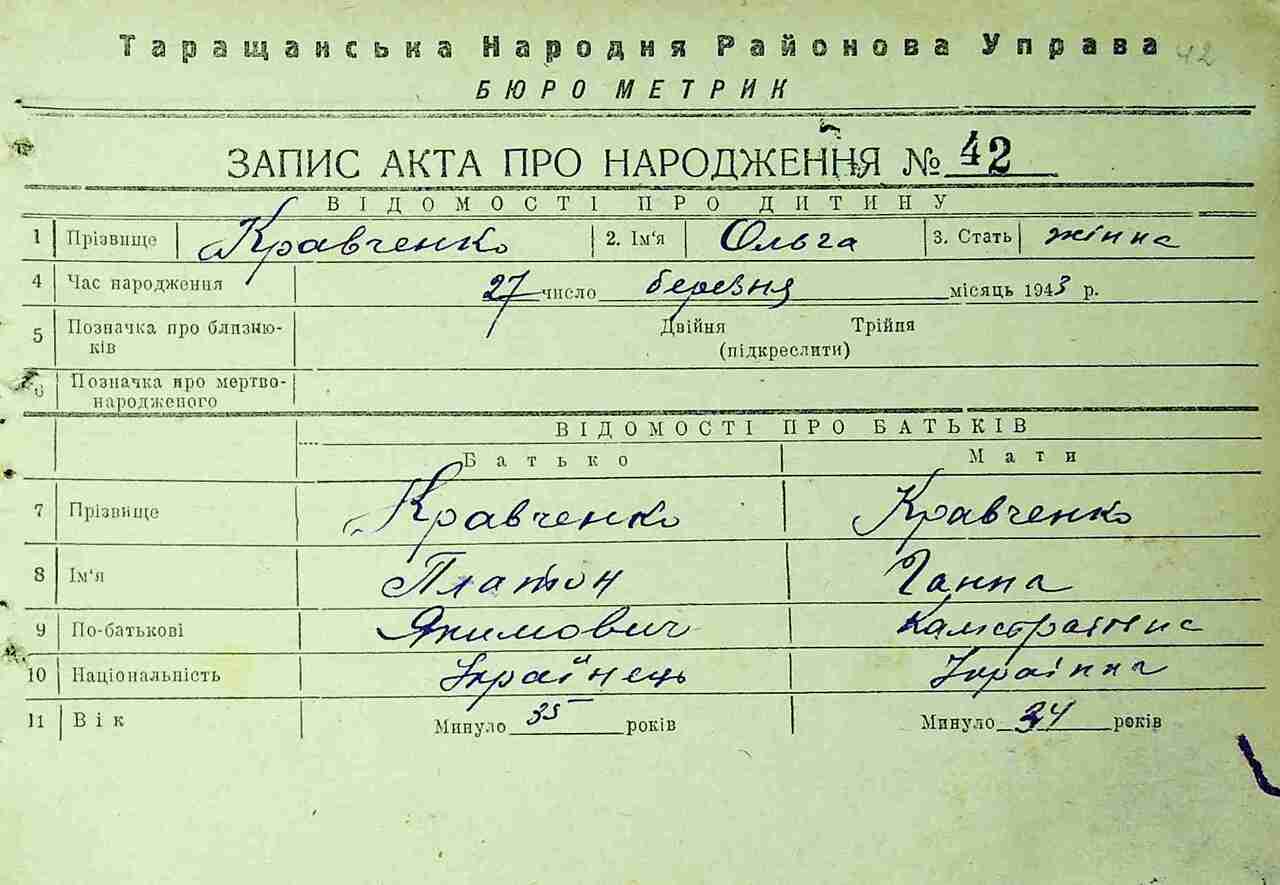 Таращанська Народня Районова Управа 42
БЮРО МЕТРИК
ЗАПИС АКТА ПРО НАРОДЖЕННЯ № 42
ВІДОМОСТІ ПРО ДИТИНУ
1 Прізвище Кравченко 2. Ім'я Ольга 3. Стать жінка
4 Час народження 27 число березня місяць 1943 р.
5 Позначка про близню- Двійня Трійня
ків (підкреслити)
6 Позначка про мертво-
народженого
ВІДОМОСТІ ПРО БАТЬКІВ
Батько Мати
7 Прізвище Кравченко Кравченко
8 Ім'я Платон Ганна
9 По-батькові Якимович
10 Національність Українець Українка
11 Вік Минуло 35 років Минуло 34 років